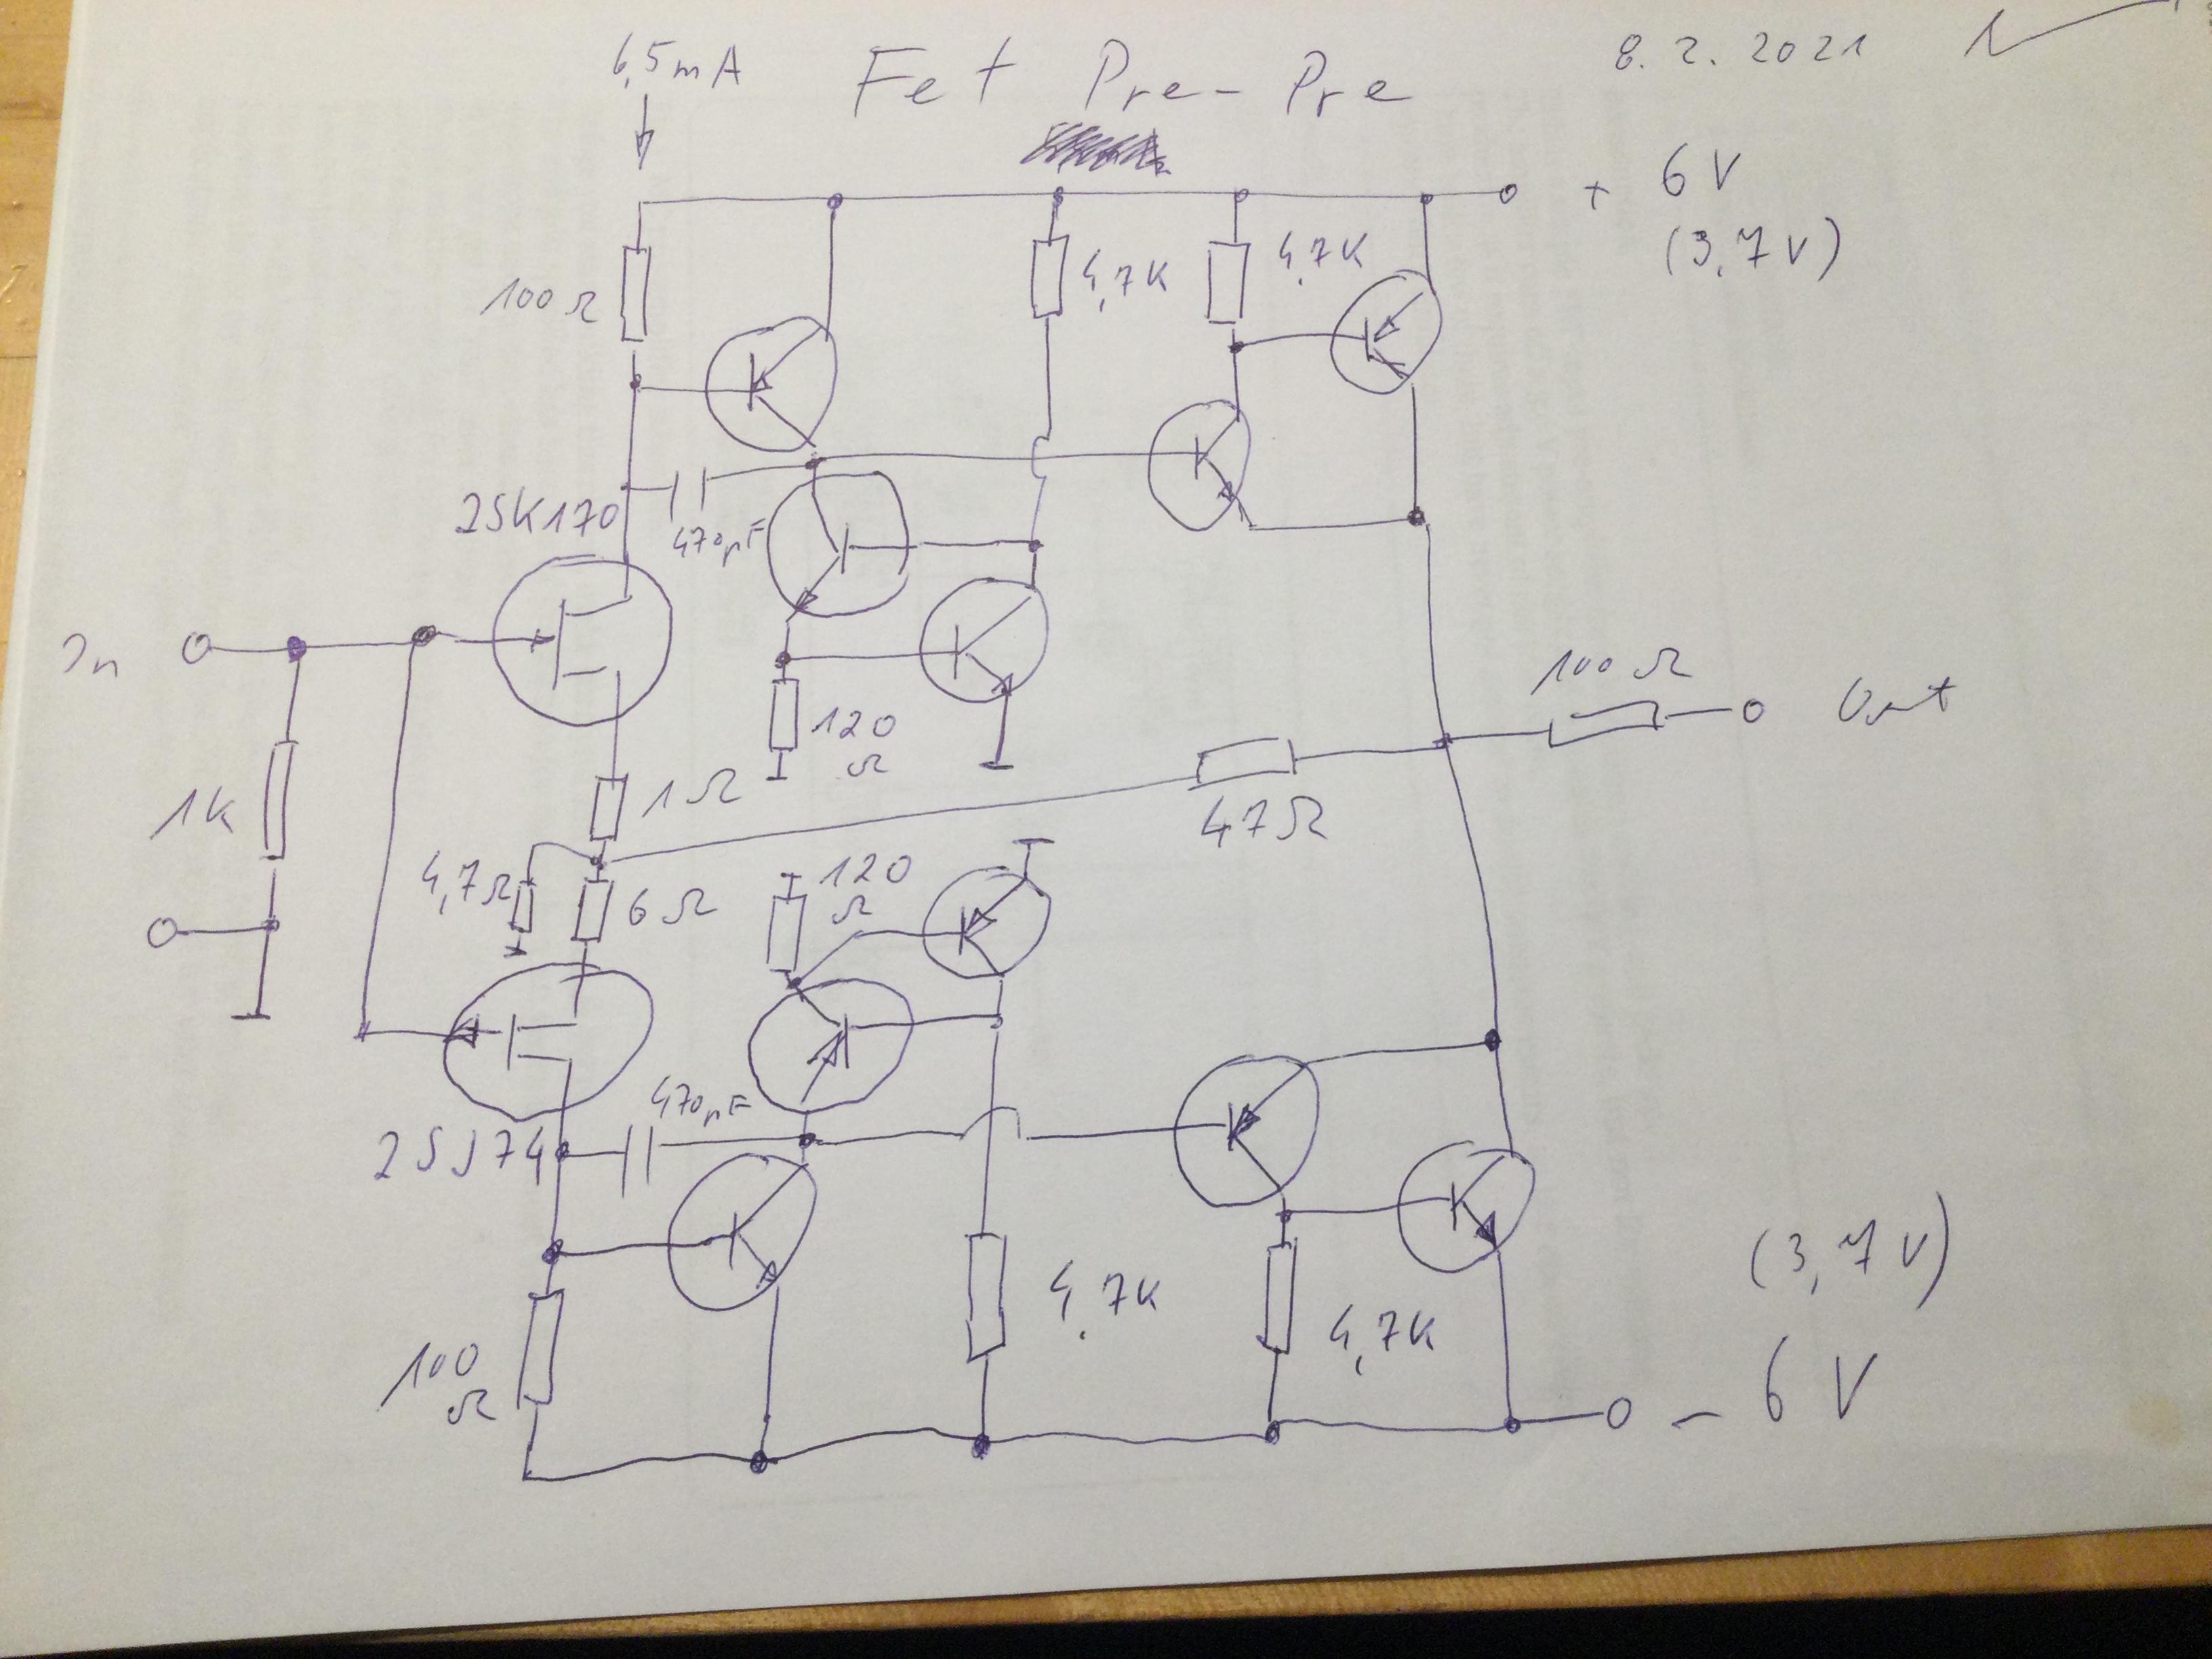 6,5mA
Fet Pre-Pre
8. 2. 2021
+ 6 V
(3,7 V)
100 Ω
4,7K
4,7K
2SK170
470pF
In
120
Ω
100 Ω
Out
1K
1Ω
47Ω
4,7Ω
6Ω
120
Ω
470pF
2SJ74
4,7K
4,7K
(3,7 V)
100
Ω
- 6 V